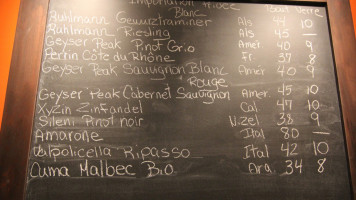 Importation Privée
Blanc Bout Verre
Ruhlmann Gewurztraminer Als 44 10
Ruhlmann Riesling Als 45 —
Geyser Peak Pinot Grio Amer 40 9
Perrin Côte du Rhône Fr 37 8
Geyser Peak Sauvignon Blanc Amer 40 9
Rouge
Geyser Peak Cabernet Sauvignon Amer. 45 10
XYZin Zinfandel Cal 47 10
Sileni Pinot noir N.zel 38 9
Amarone Ital 80 —
Valpolicella Ripasso Ital 42 10
Cuma Malbec Bio Arg 34 8